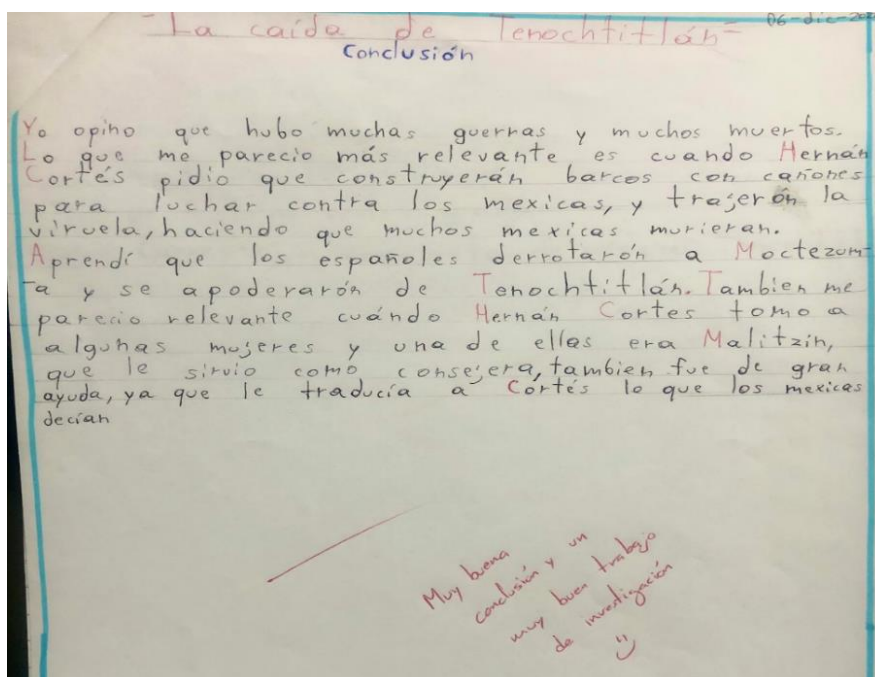 -La caída de Tenochtitlán-
06-dic-
Conclusión
Yo opino que hubo muchas guerras y muchos muertos.
Lo que me parecio más relevante es cuando Hernán
Cortés pidio que construyerán barcos con cañones
para luchar contra los mexicas, y trajerón la
viruela, haciendo que muchos mexicas murieran.
Aprendí que los españoles derrotarón a Moctezum-
a y se apoderarón de Tenochtitlán. Tambien me
parecio relevante cuándo Hernán Cortes tomo a
algunas mujeres y una de ellas era Malitzin,
que le sirvio como consejera, tambien fue de gran
ayuda, ya que le traducía a Cortés lo que los mexicas
decían
Muy buena
conclusión y un
muy buen trabajo
de investigación